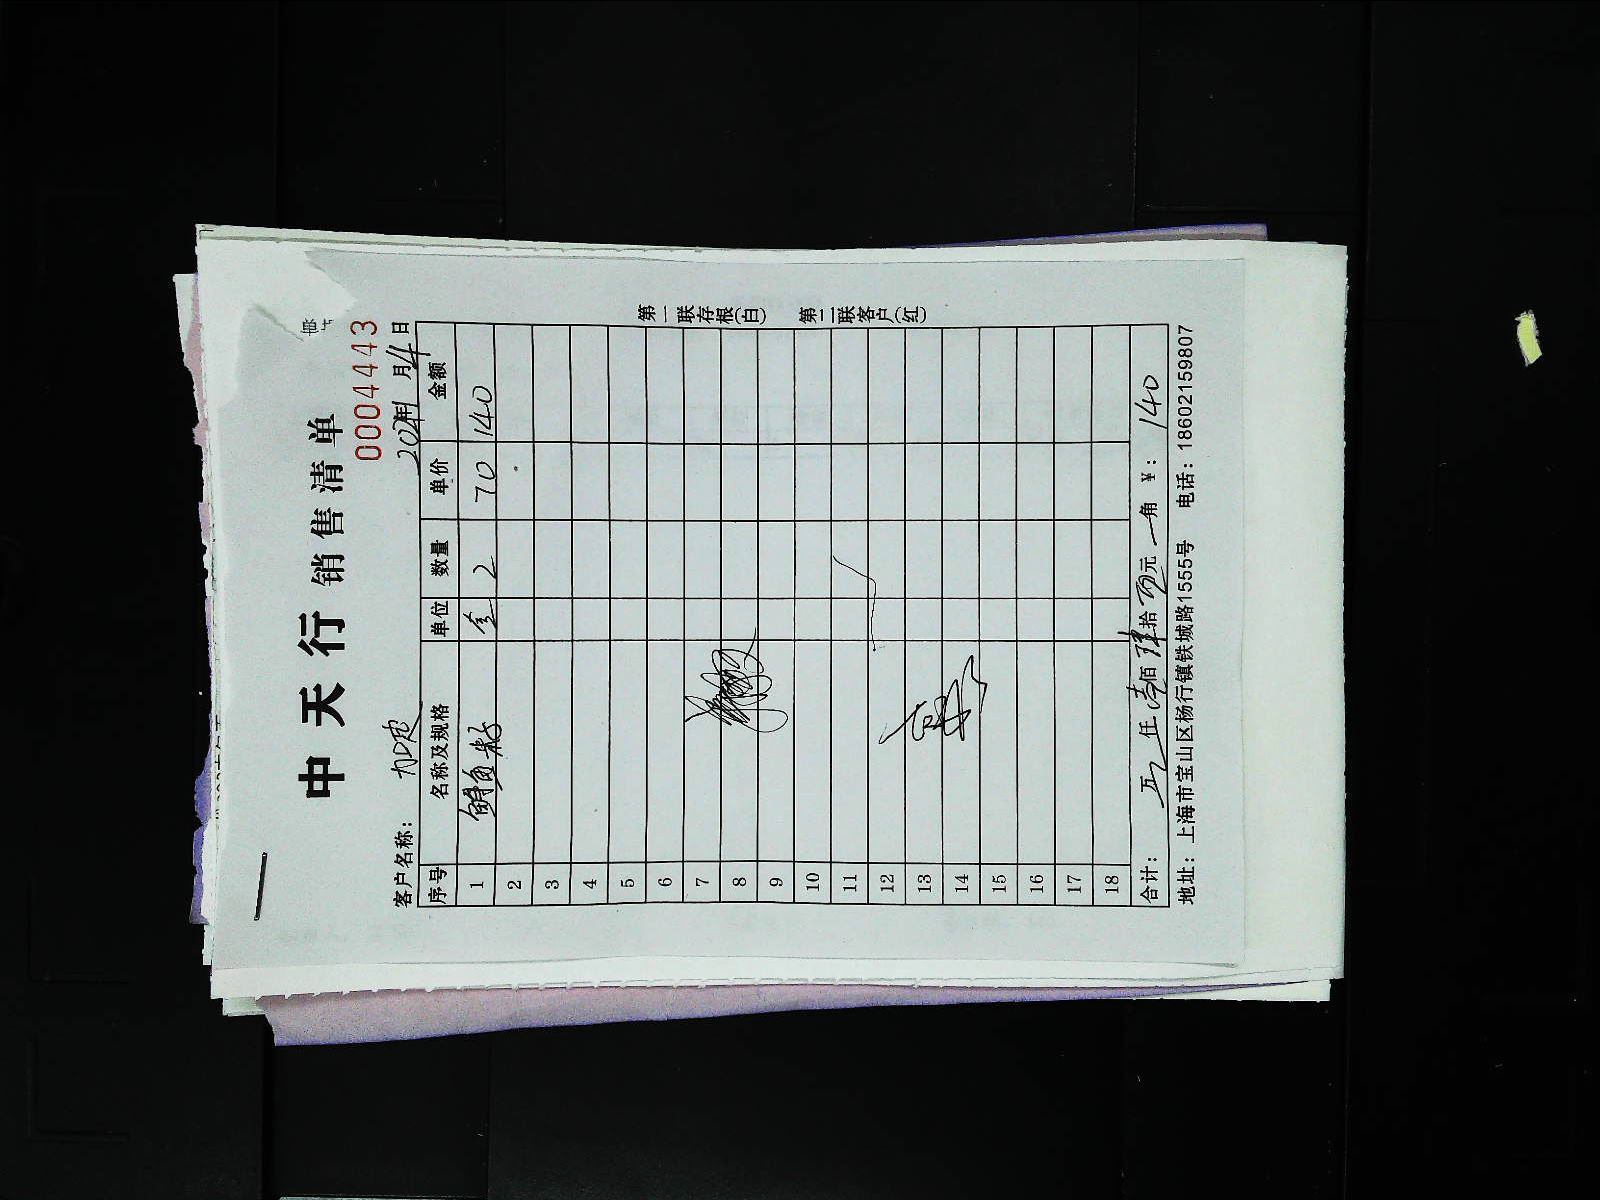 中天行销售清单
0004443
客户名称：
2021年 月 4日
序号 名称及规格 单位 数量 单价 金额
1 鲍鱼 2 70 140
2
3
4
5
6
7
8
9
10
11
12
13
14
15
16
17
18
合计： 万 仟 壹佰 肆拾 元 角 ￥：140
地址：上海市宝山区杨行镇铁城路1555号 电话：18602159807
第一联存根(白) 第二联客户(红)